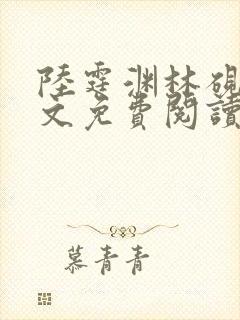 陸霆淵林硯
文免費閱讀
慕青青